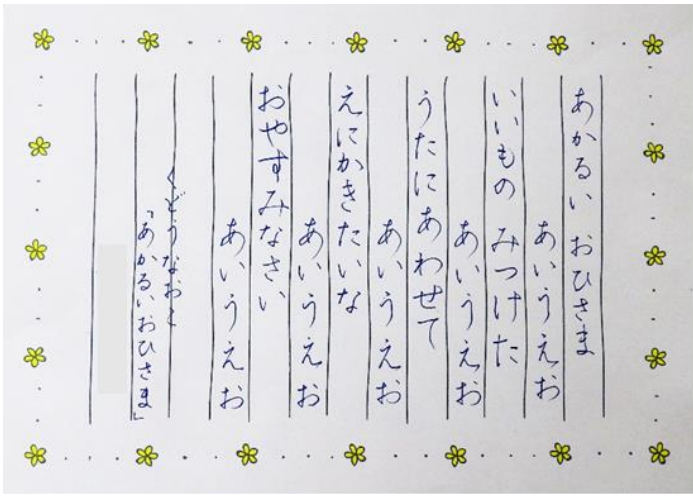 あかるい おひさま
あいうえお
いいもの みつけた
あいうえお
うたにあわせて
あいうえお
えにかきたいな
あいうえお
おやすみなさい
あいうえお
くどうなおこ
「あかるいおひさま」